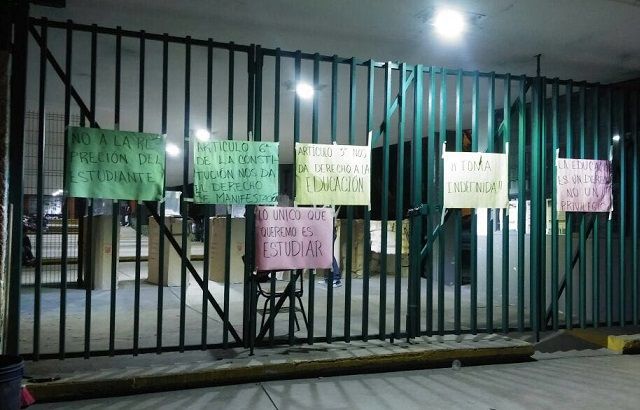 NO A LA RE-
PRECIÓN DEL
ESTUDIANTE
ARTICULO 6°
DE LA CONSTI-
TUCIÓN NOS DA
EL DERECHO
DE MANIFESTACIÓN
ARTICULO 3° NOS
DA DERECHO A LA
EDUCACIÓN
¡¡ TOMA
INDEFINIDA!!
LA EDUCACIÓN
ES UN DERECHO
NO UN
PRIVILEGIO
LO UNICO QUE
QUEREMO ES
ESTUDIAR